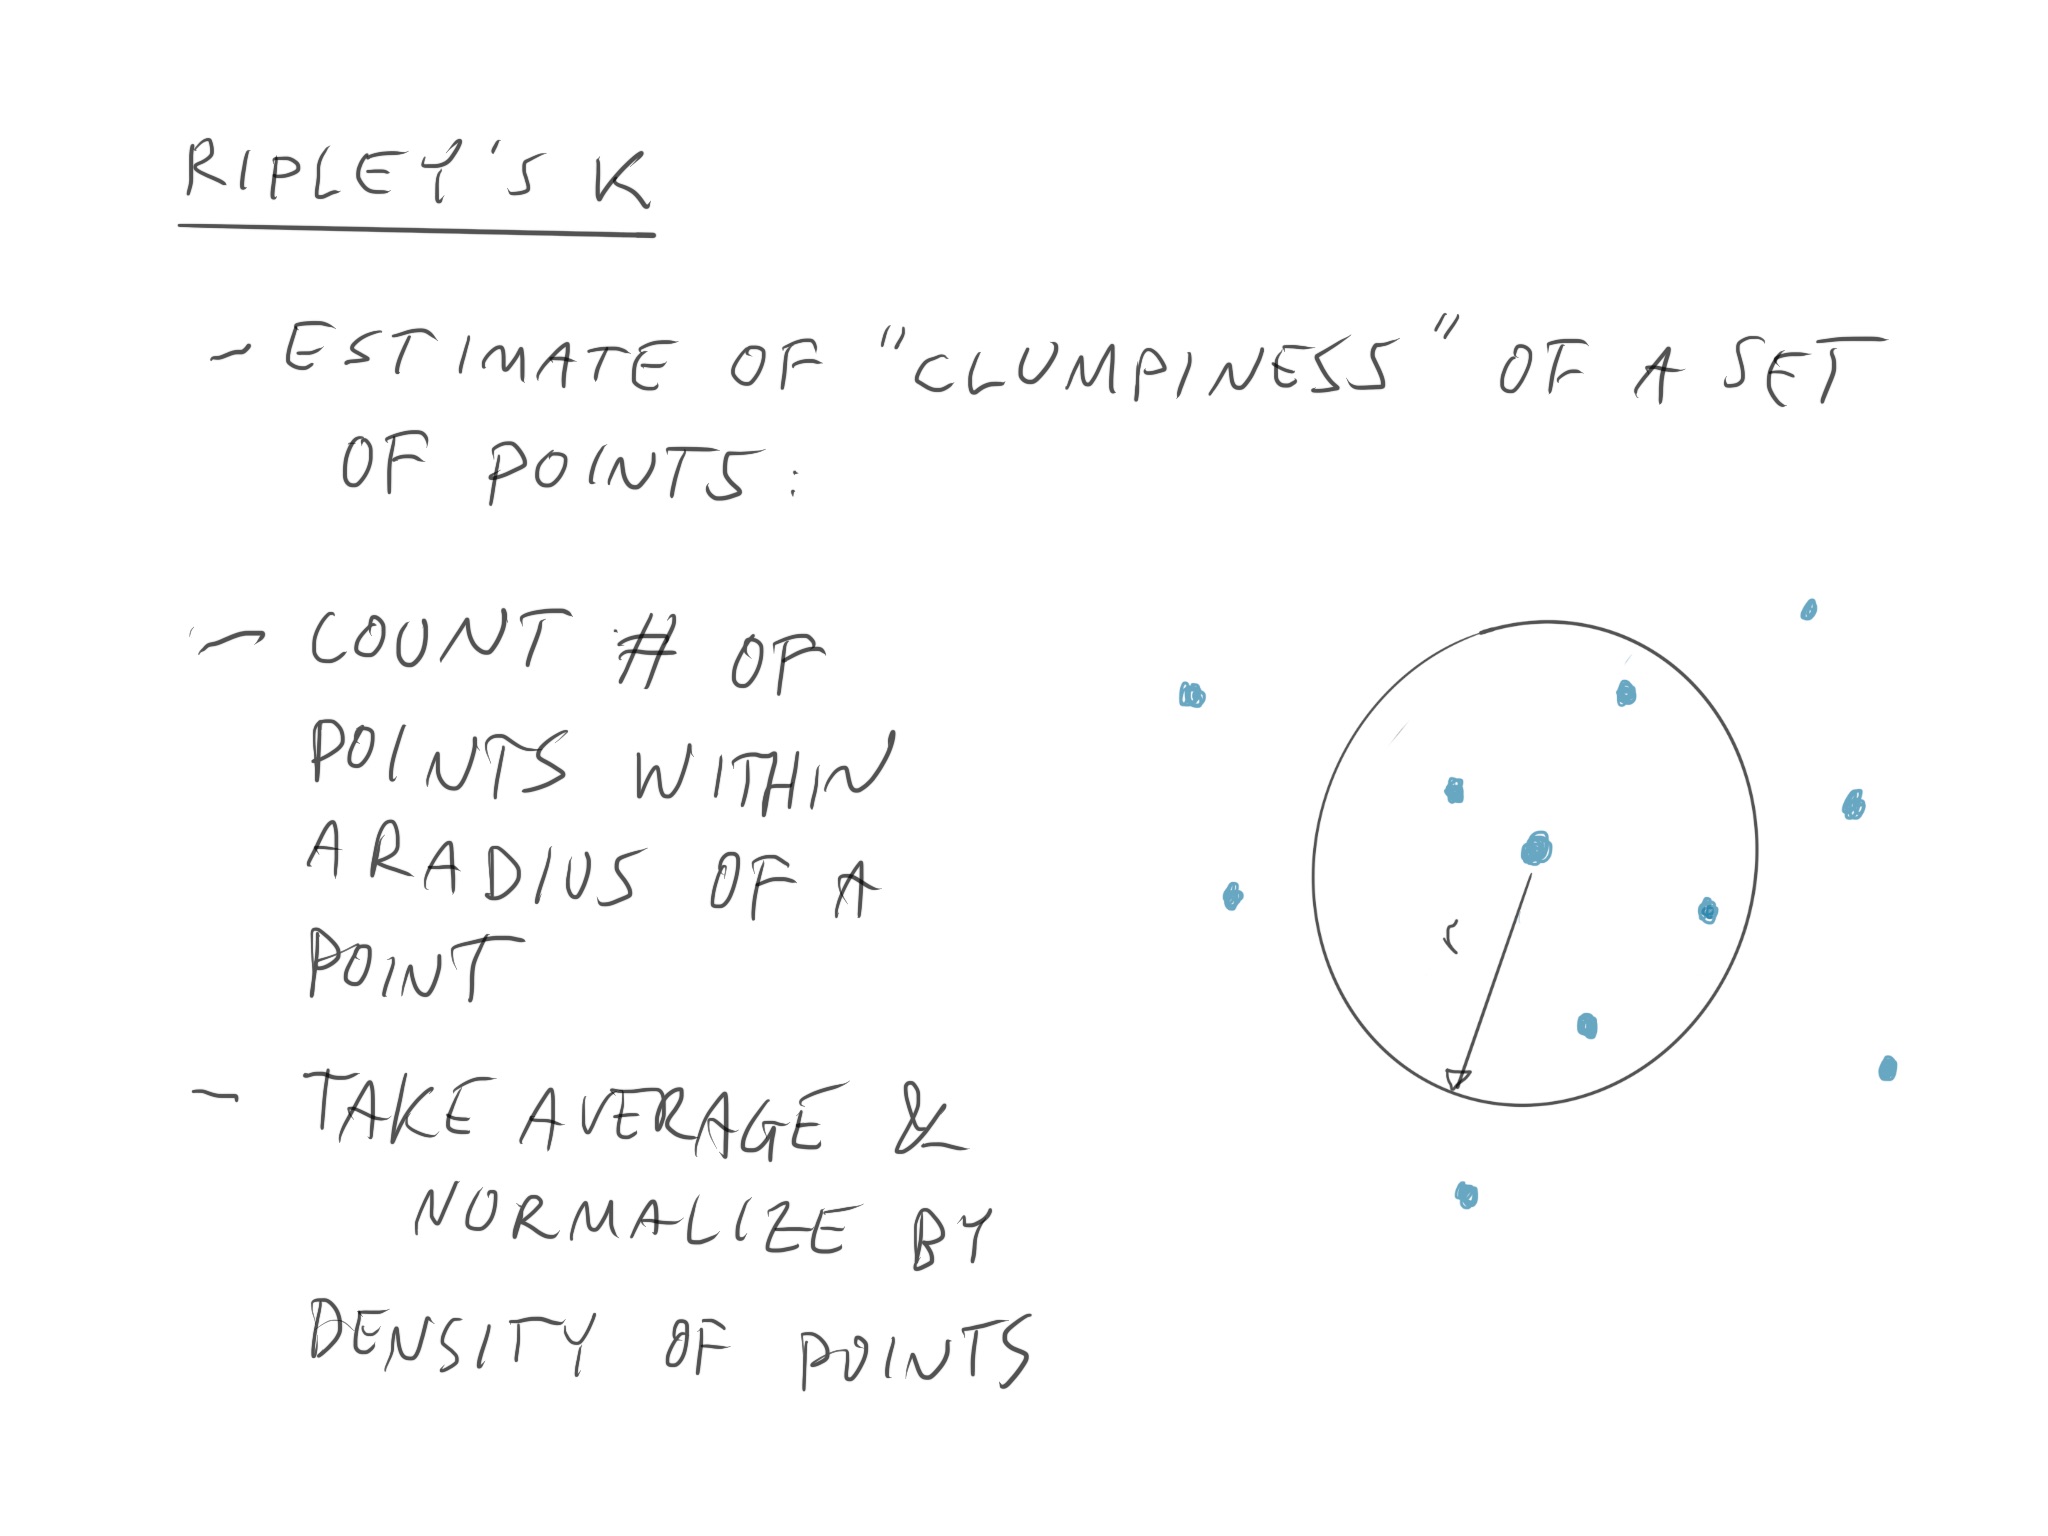 RIPLEY'S K
- ESTIMATE OF "CLUMPINESS" OF A SET
OF POINTS:
- COUNT # OF
POINTS WITHIN
A RADIUS OF A
POINT
r
- TAKE AVERAGE &
NORMALIZE BY
DENSITY OF POINTS